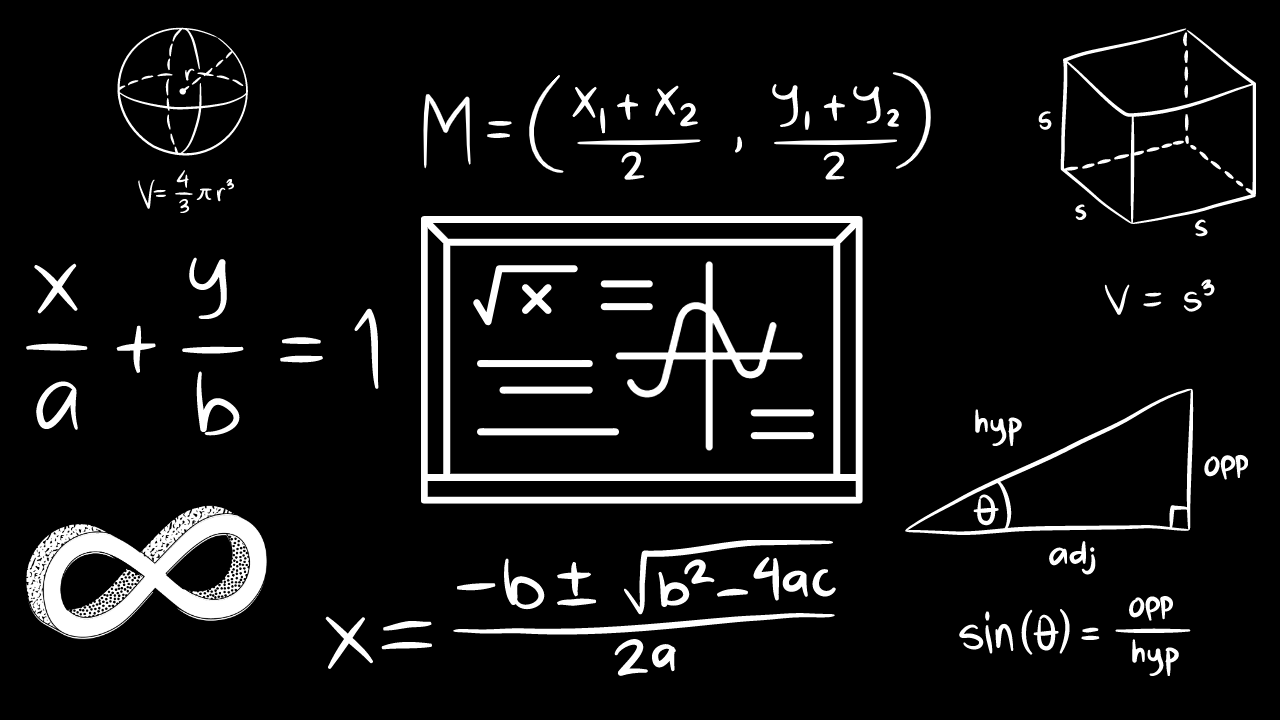 r
V = 4/3 πr³
M = ( x₁ + x₂ / 2 , y₁ + y₂ / 2 )
s
s
s
V = s³
x/a + y/b = 1
√x =
=
hyp
opp
θ
adj
x = -b ± √b² - 4ac / 2a
sin(θ) = opp / hyp